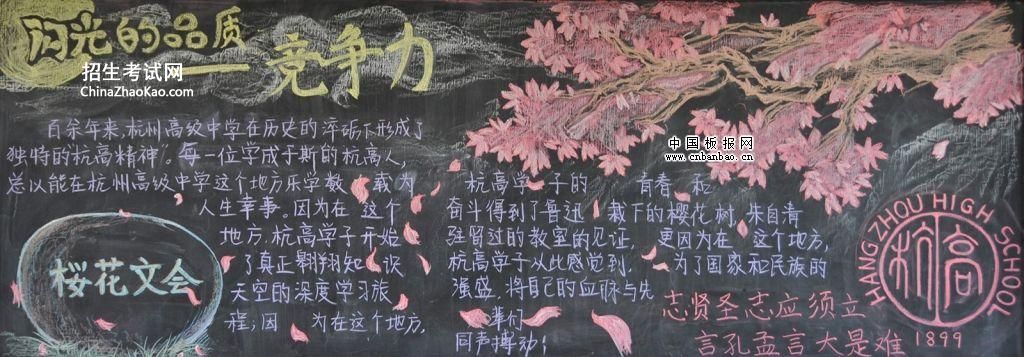 闪光的品质
——竞争力
招生考试网
ChinaZhaoKao.com
中国板报网
www.cnbanbao.cn
百余年来,杭州高级中学在历史的淬砺下形成了
独特的“杭高精神”。每一位学成于斯的杭高人,
总以能在杭州高级中学这个地方乐学数载为
人生幸事。因为在这个
地方,杭高学子开始
了真正翱翔知识
天空的深度学习旅
程;因为在这个地方,
樱花文会
杭高学子的
奋斗得到了鲁迅
驻留过的教室的见证,
杭高学子以此感觉到,
强盛,将自己的血脉与先
辈们
同声搏动!
有青和
栽下的樱花树,朱自清
更因为在这个地方,
为了国家和民族的
志贤圣志应须立
言孔孟言大是难
HANG ZHOU HIGH SCHOOL
杭高
1899